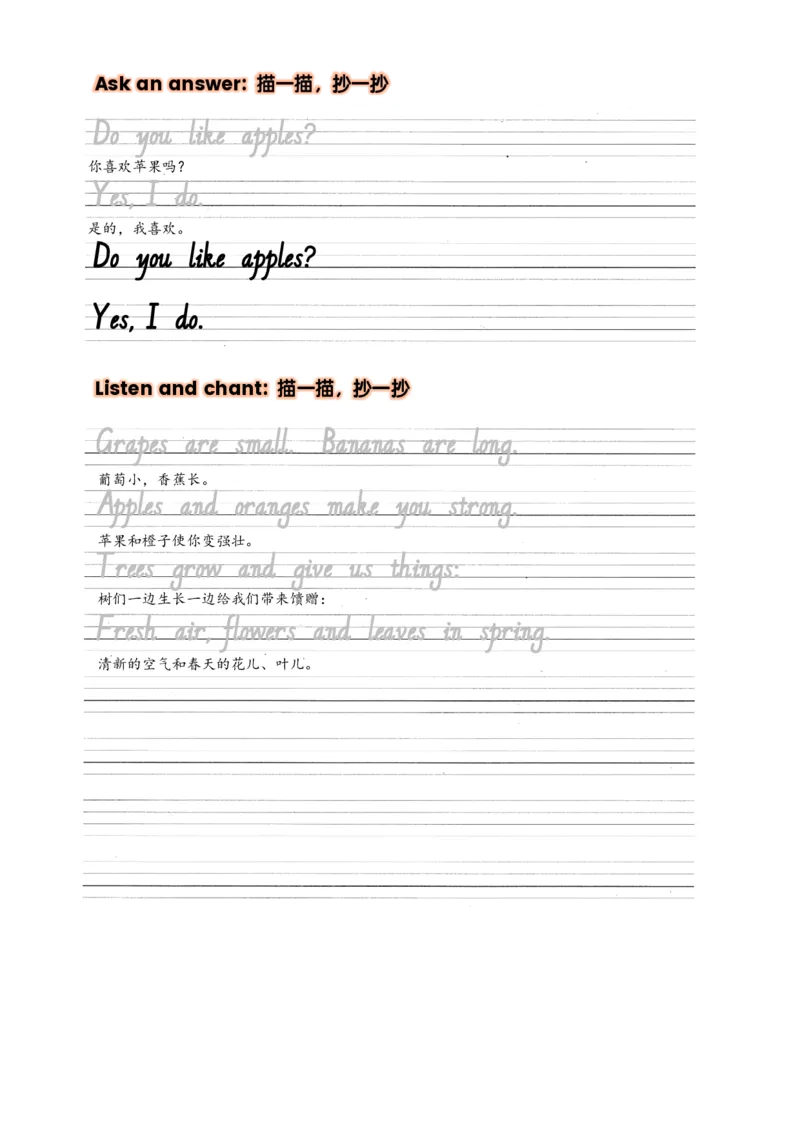 Ask an answer: 描一描，抄一抄
Do you like apples?
你喜欢苹果吗？
Yes, I do.
是的，我喜欢。
Do you like apples?
Yes, I do.
Listen and chant: 描一描，抄一抄
Grapes are small. Bananas are long.
葡萄小，香蕉长。
Apples and oranges make you strong.
苹果和橙子使你变强壮。
Trees grow and give us things:
树们一边生长一边给我们带来馈赠：
Fresh air, flowers and leaves in spring.
清新的空气和春天的花儿、叶儿。